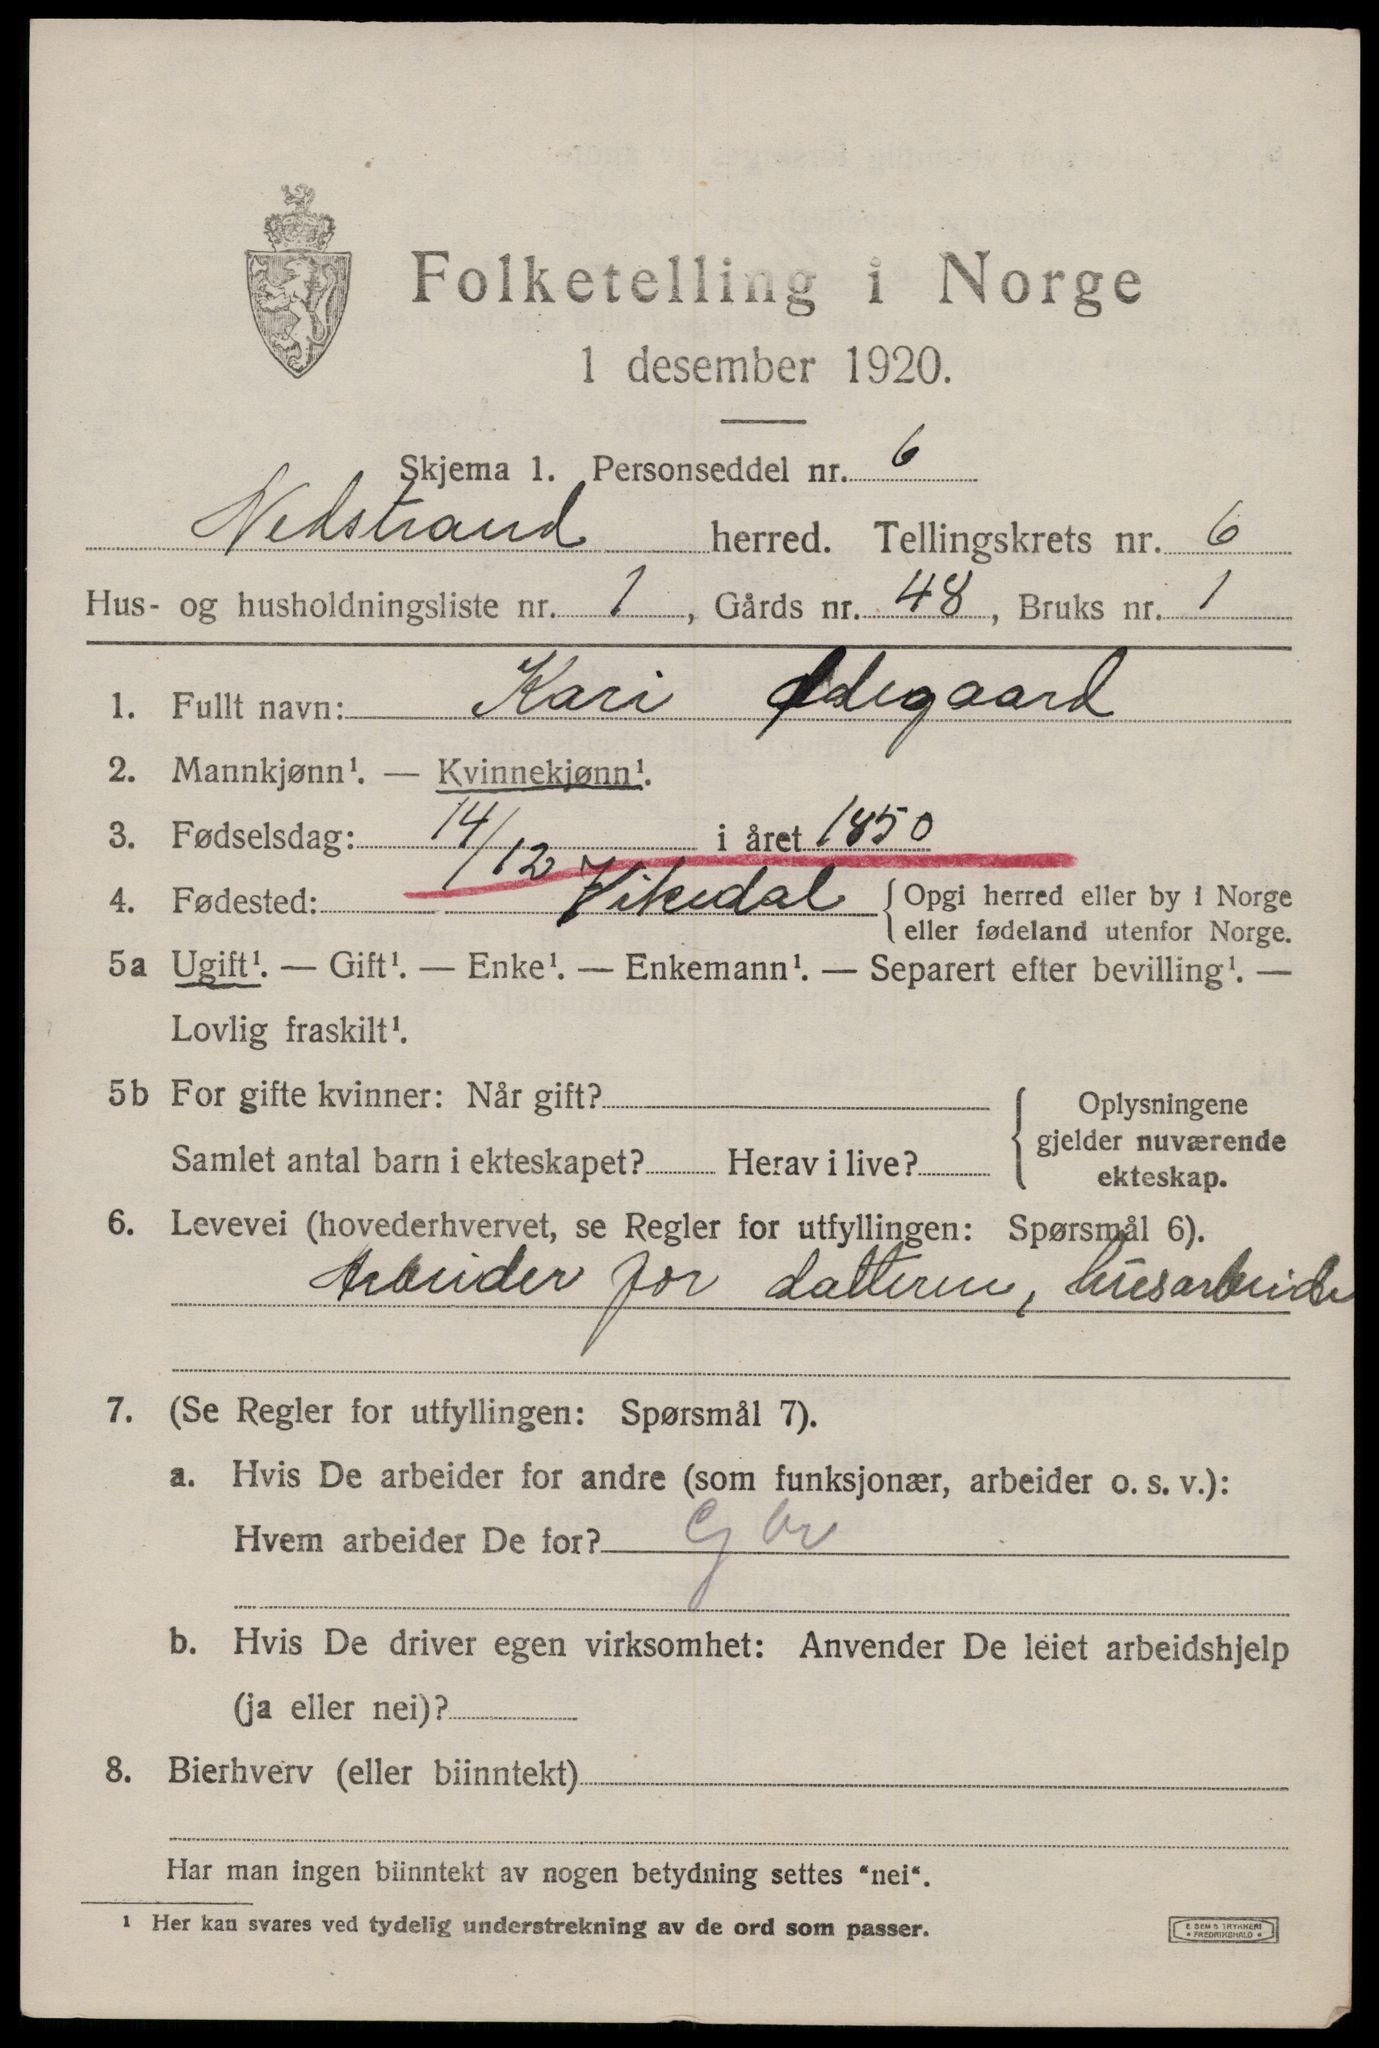 Folketelling i Norge
1 desember 1920.
Skjema 1. Personseddel nr. 6
Nedstrand herred. Tellingskrets nr. 6
Hus- og husholdningsliste nr. 1, Gårds nr. 48, Bruks nr. 1
1. Fullt navn: Kari Ødegaard
2. Mannkjønn¹. — Kvinnekjønn¹.
3. Fødselsdag: 14/12 i året 1850
4. Fødested: Vikedal { Opgi herred eller by i Norge
eller fødeland utenfor Norge.
5a Ugift¹. — Gift¹. — Enke¹. — Enkemann¹. — Separert efter bevilling¹. —
Lovlig fraskilt¹.
5b For gifte kvinner: Når gift?
Samlet antal barn i ekteskapet? Herav i live?
{ Oplysningene
gjelder nuværende
ekteskap.
6. Levevei (hovederhvervet, se Regler for utfyllingen: Spørsmål 6).
Arbeider for datteren, husarbeide
7. (Se Regler for utfyllingen: Spørsmål 7).
a. Hvis De arbeider for andre (som funksjonær, arbeider o. s. v.):
Hvem arbeider De for?
b. Hvis De driver egen virksomhet: Anvender De leiet arbeidshjelp
(ja eller nei)?
8. Bierhverv (eller biinntekt)
Har man ingen biinntekt av nogen betydning settes "nei".
1 Her kan svares ved tydelig understrekning av de ord som passer.
E SEMS TRYKKERI
* FREDRIKSHALD *